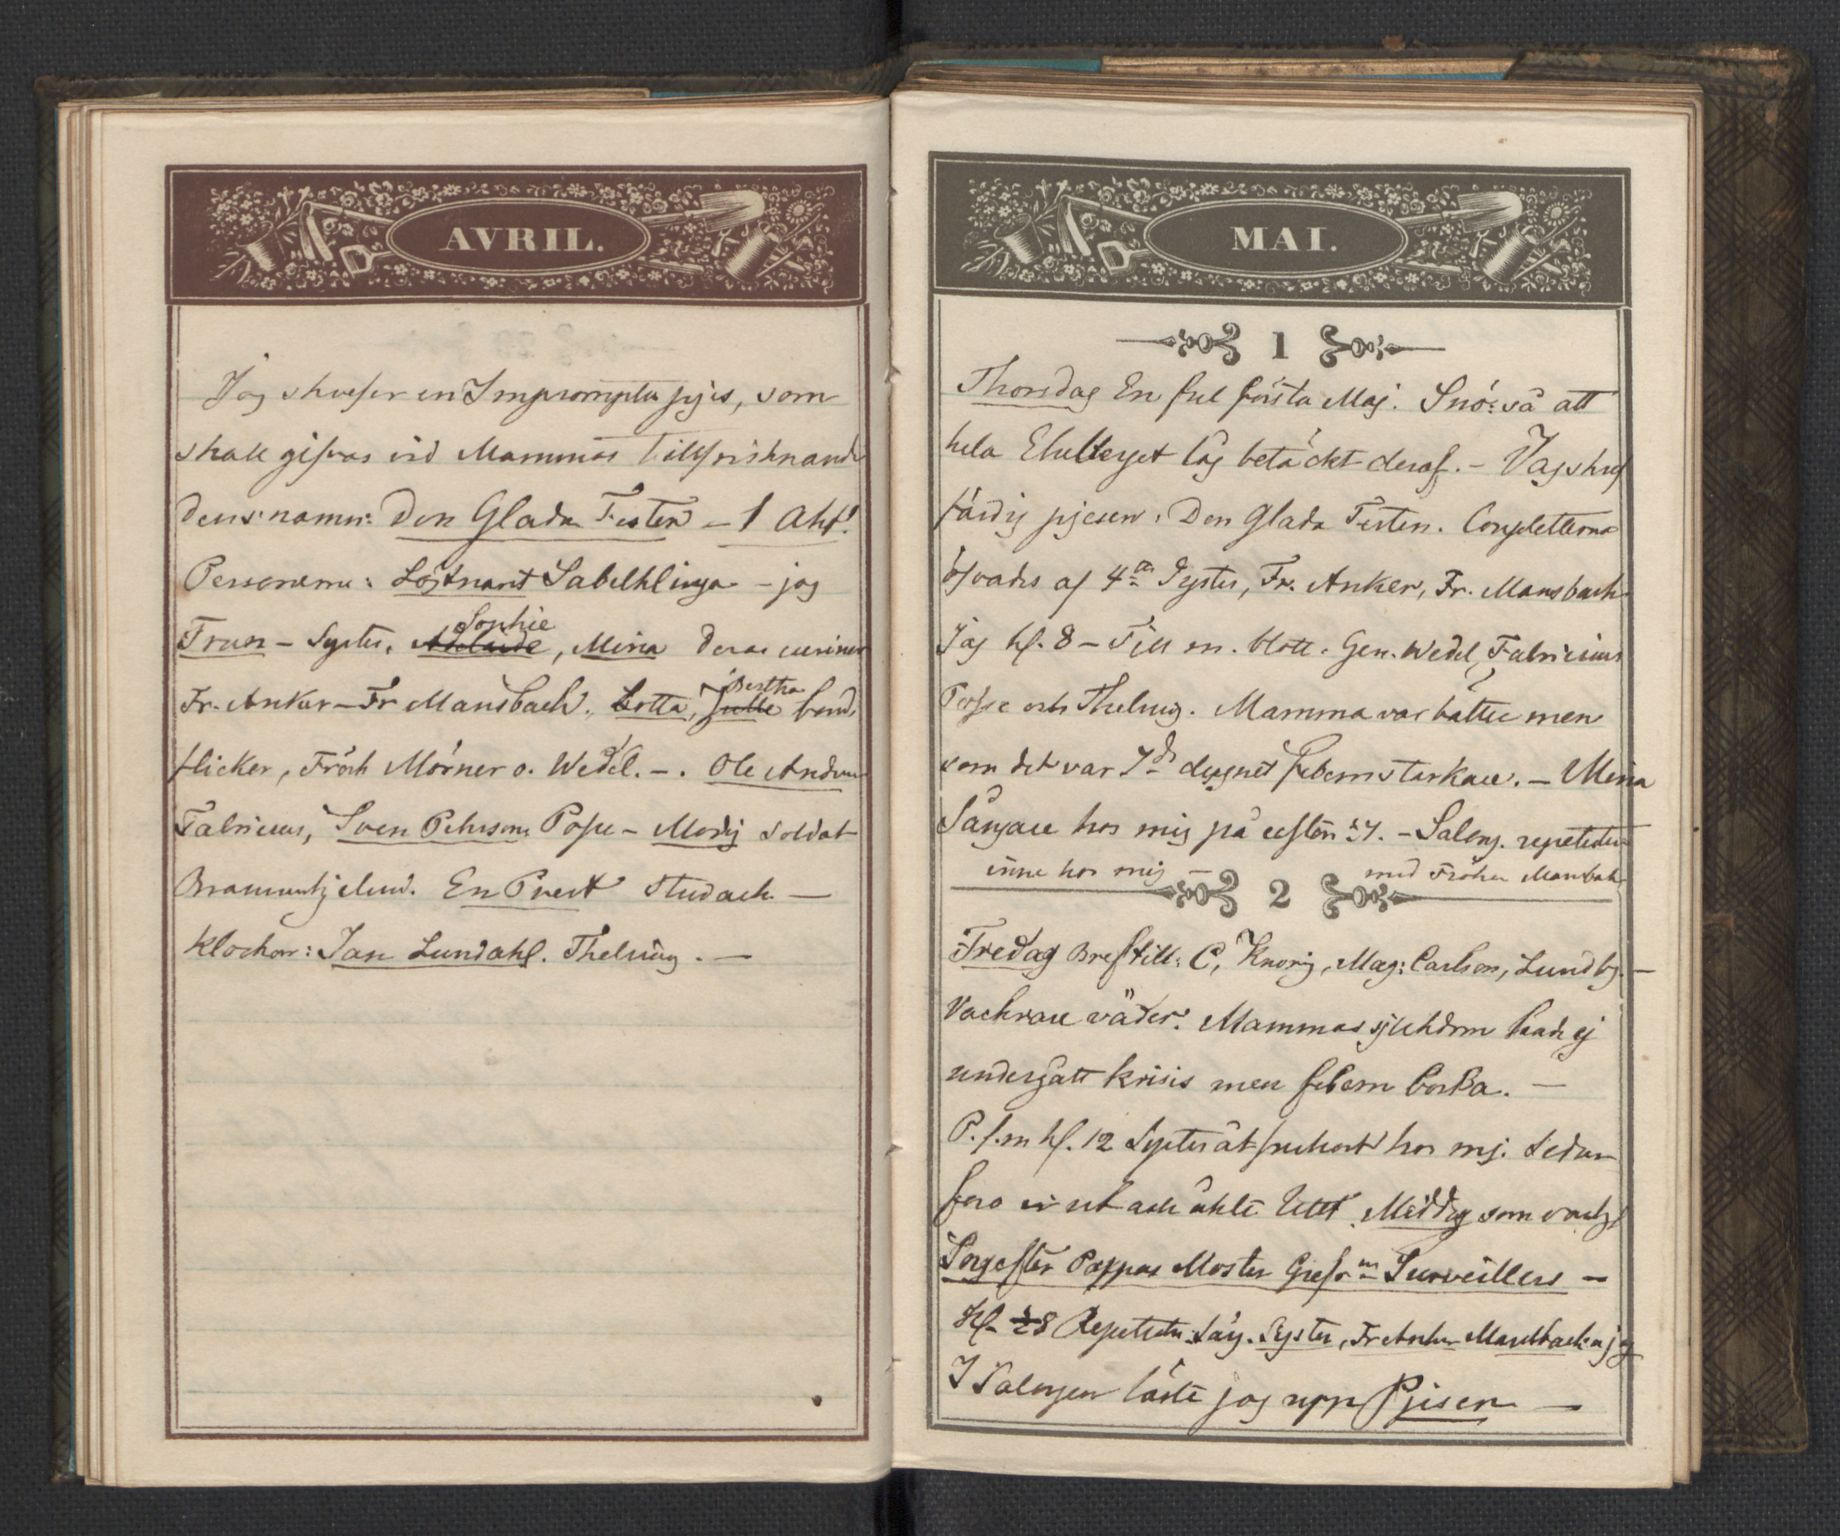 AVRIL.
Jag skrefver en Impromptu pjes, som
skall gifvas vid Mammas Tillfrisknande
dess namn: Den Glada Festen – 1 Akt!
Personerne: Löjtnant Sabelklinga – jag
Frun – Syster, Adelaide Sophie, Mina deras cusiner
Fr. Anker – Fr Mansbach. Lotta, Julle Bertha bond
flicker, Frök Mörner o. Wedel. –. Ole Anders
Fabricius, Sven Pehrson Posse – Modig soldat
Brammenhjelm. En Prest Studach. —
Klockare: Jan Lundahl. Thelning. —
MAI.
1
Thorsdag En ful första Maj. Snö: så att
hela Ekeberget låg betäckt deraf. – Jag skref
färdig pjesen: Den Glada Festen. Coupletterna
öfvades af 4 Syster, Fr. Anker, Fr. Mansbach
Jag kl. 8 – Till m. blott. Gen. Wedel, Fabricius
Posse och Thelning. Mamma var bättre men
som det var 7de dygnet febern starkare. – Mina
Sångare hos mig på eftm 27. – Salong. repeterter
inne hos mig – med Fröken Mansbach
2
Fredag Bref till: C, Knorig, Mag: Carlson, Lundby. —
Vackrare väder. Mammas sjukdom hade ej
undergått krisis men febern borta. —
P. f.m kl. 12 Syster åt frukost hos mig. Sedan
foro vi ut och åkte litet. Middag som vanligt
Sorg efter Pappas Moster Grefvn Surveillers –
Kl. 8 Repeterter Sång. Syster, Fr Anker Mansbach o jag
I Salongen läste jag upp Pjesen —